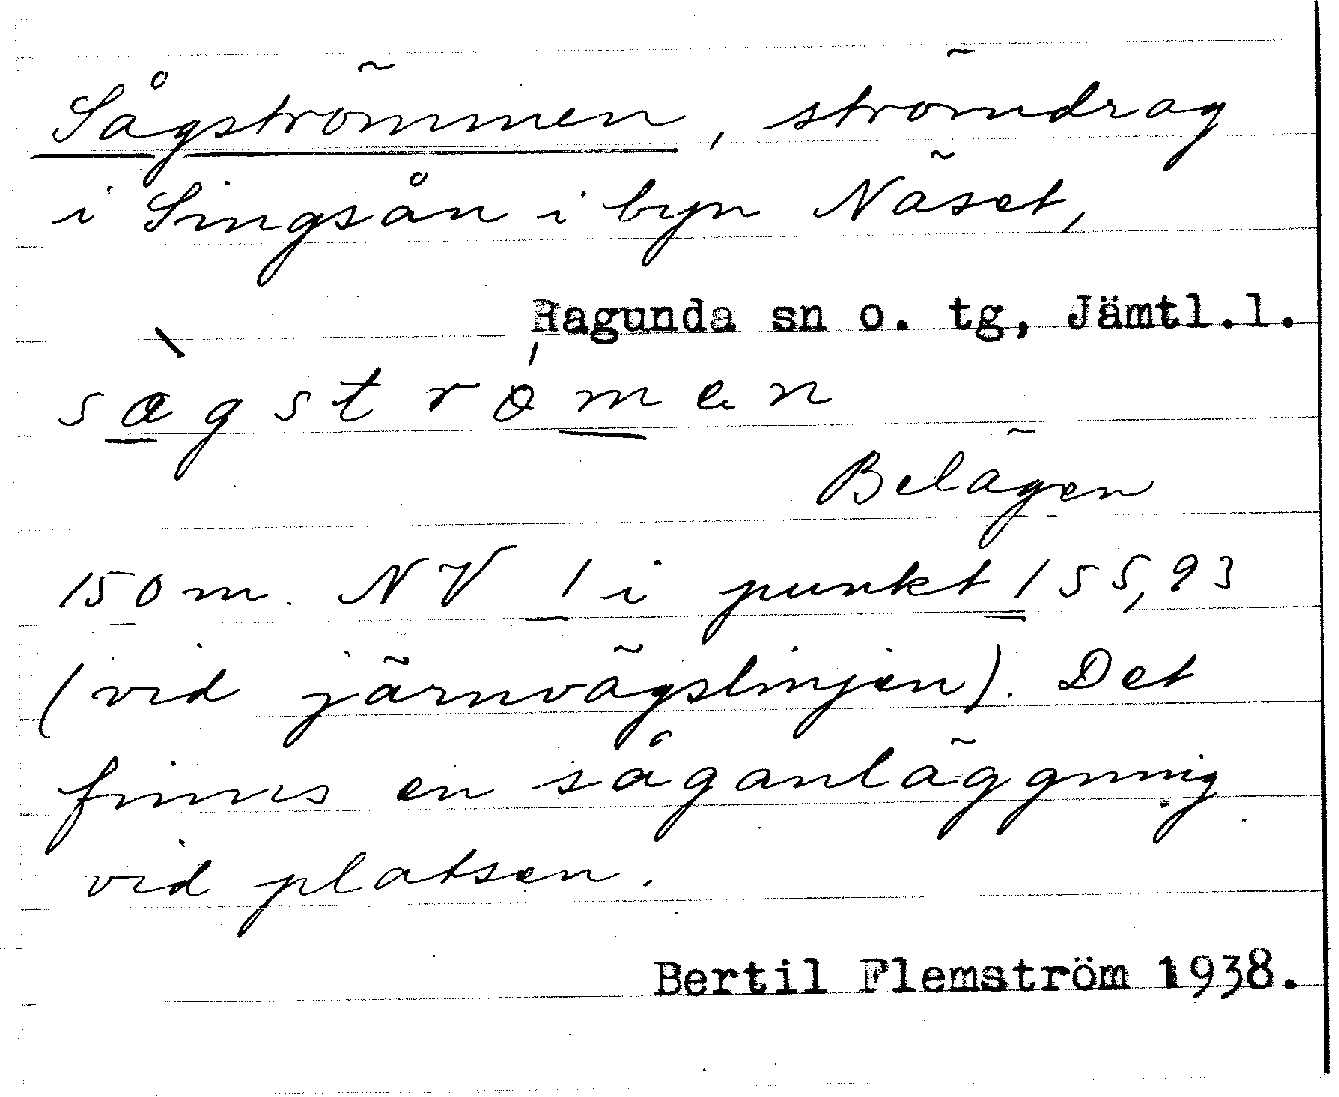 Sågströmmen, strömdrag
i Singsån i byn Näset,
Ragunda sn o. tg, Jämtl.l.
s æ̀ g s t r ǿ m e n
Belägen
150 m. NV 1 i punkt 155,93
(vid järnvägslinjen). Det
finns en såganläggning
vid platsen.
Bertil Flemström 1938.